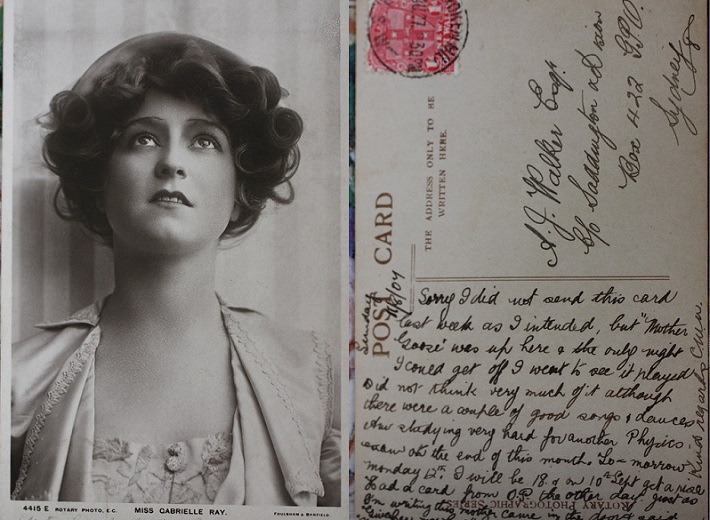 4415 E ROTARY PHOTO, E.C. MISS GABRIELLE RAY. FOULSHAM & BANFIELD.
POST CARD
THE ADDRESS ONLY TO BE
WRITTEN HERE.
A. J. Walker Esq.
C/o Saddington
Box 422 G.P.O.
Sydney
Sunday
Sorry I did not send this card
last week as I intended, but "Mother
Goose" was up here & the only night
I could get off I went to see it played
Did not think very much of it although
there were a couple of good songs & dances
Am studying very hard for another Physics
exam at the end of this month. To-morrow
monday 12th I will be 18 & on 10th Sept get a rise
Had a card from O.P. the other day just as
I'm writing this mother came in the door & said
Kind regards
ROTARY PHOTOGRAPHIC SERIES